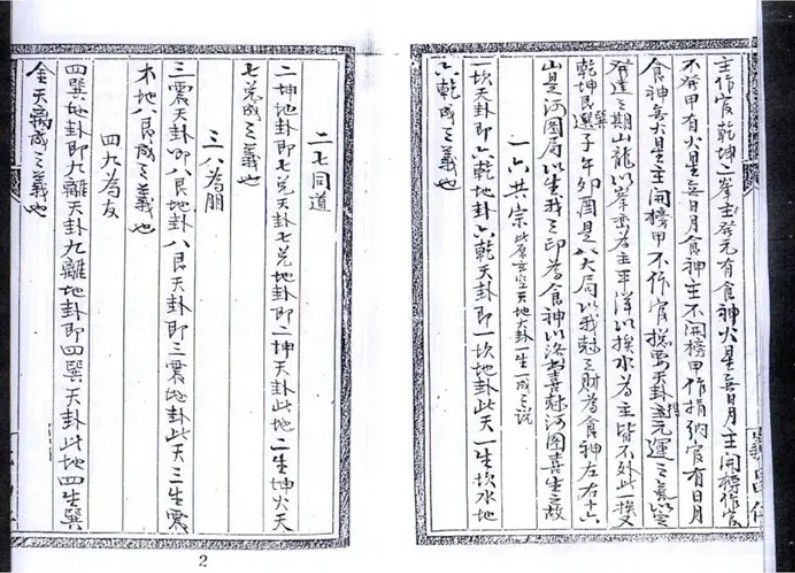 主作官乾坤二峯主發元有食神火星無日月主開榜作官
不發甲有火星無日月食神主不開榜甲作捐納官有日月
食神無火星主開榜甲不作官揔要天卦主元運之氣以定
發達之期山龍以峯巒為主平洋以挨水為主皆不外此一挨又
乾坤艮巽子午卯酉是八大局以我尅之財為食神左右十六
山是河圖局以生我之印為食神以洛書喜尅河圖喜生之故
一六共宗此原玄空天地大卦一生一成之說
一坎天卦即六乾地卦六乾天卦即一坎地卦此天一生坎水地
六乾成之義也
二七同道
二坤地卦即七兑天卦七兑地卦即二坤天卦此地二生坤火天
七兑成之義也
三八為朋
三震天卦即八艮地卦八艮天卦即三震地卦此天三生震
木地八艮成之義也
四九為友
四巽地卦即九離天卦九離地卦即四巽天卦此地四生巽
金天九離成之義也
2